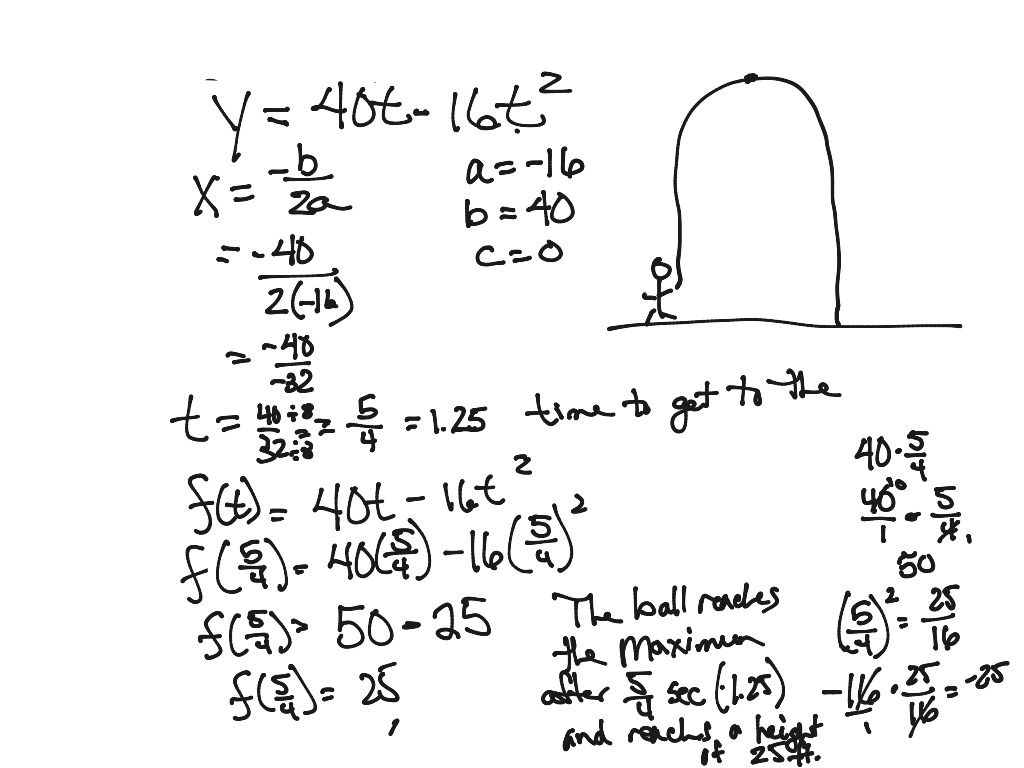 y = 40t - 16t²
x = -b/2a
a = -16
b = 40
c = 0
= -40/2(-16)
= -40/-32
t = 40÷8/32÷8 = 5/4 = 1.25 time to get to the
f(t) = 40t - 16t²
f(5/4) = 40(5/4) - 16(5/4)²
f(5/4) = 50 - 25
f(5/4) = 25
The ball reaches
the maximum
after 5/4 sec (1.25)
and reaches a height
of 25ft.
40 · 5/4
40/1 · 5/4
10
1
50
(5/4)² = 25/16
-16/1 · 25/16 = -25